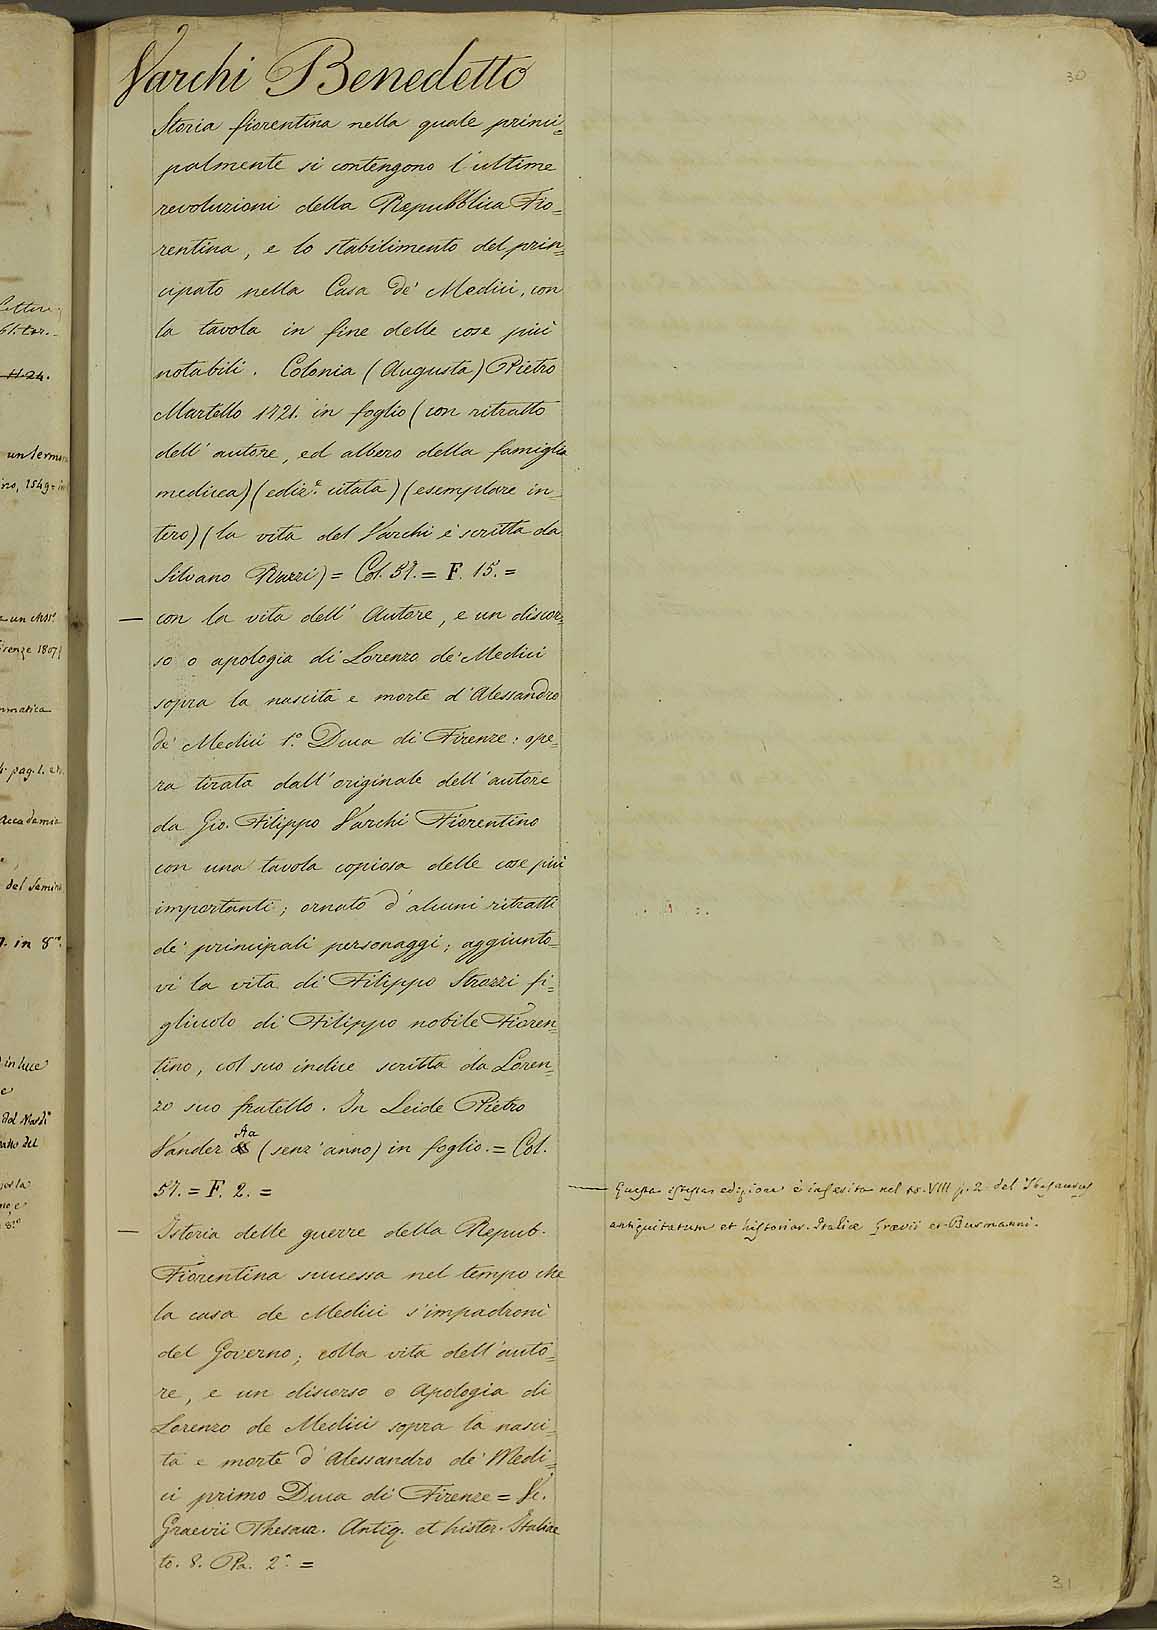 30
Varchi Benedetto
Storia fiorentina nella quale princi=
palmente si contengono l'ultime
revoluzioni della Repubblica Fio=
rentina, e lo stabilimento del prin=
cipato nella Casa de' Medici, con
la tavola in fine delle cose più
notabili. Colonia (Augusta) Pietro
Martello 1721. in foglio (con ritratto
dell' autore, ed albero della famiglia
medicea) (ediz.e citata) (esemplare in=
tero) (la vita del Varchi è scritta da
Silvano Razzi) = Col. 57. = F. 15. =
— con la vita dell' Autore, e un discor=
so o apologia di Lorenzo de' Medici
sopra la nascita e morte d'Alessandro
de' Medici 1.o Duca di Firenze: ope=
ra tirata dall' originale dell' autore
da Gio. Filippo Varchi Fiorentino
con una tavola copiosa delle cose più
importanti; ornato d'alcuni ritratti
de' principali personaggi; aggiunto=
vi la vita di Filippo Strozzi fi=
gliuolo di Filippo nobile Fioren=
tino, col suo indice scritta da Loren=
zo suo fratello. In Leide Pietro
Vander Aa (senz' anno) in foglio. = Col.
57. = F. 2. =
— Questa istessa edizione è inserita nel to. VIII p. 2 del Thesaurus
antiquitatum et historiar. Italiæ Grævii et Burmanni.
— Istoria delle guerre della Repub.
Fiorentina successa nel tempo che
la casa de Medici s'impadronì
del Governo; colla vita dell' auto=
re, e un discorso o Apologia di
Lorenzo de Medici sopra la nasci=
ta e morte d'Alessandro de' Medi=
ci primo Duca di Firenze = V.
Graevii Thesaur. Antiq. et histor. Italiae
to. 8. Pa. 2.a =
31
11.24.
un
1549
un
renze 1807
mmatica
pag. 1.
accademia
del Semin
in 8.vo
in luce